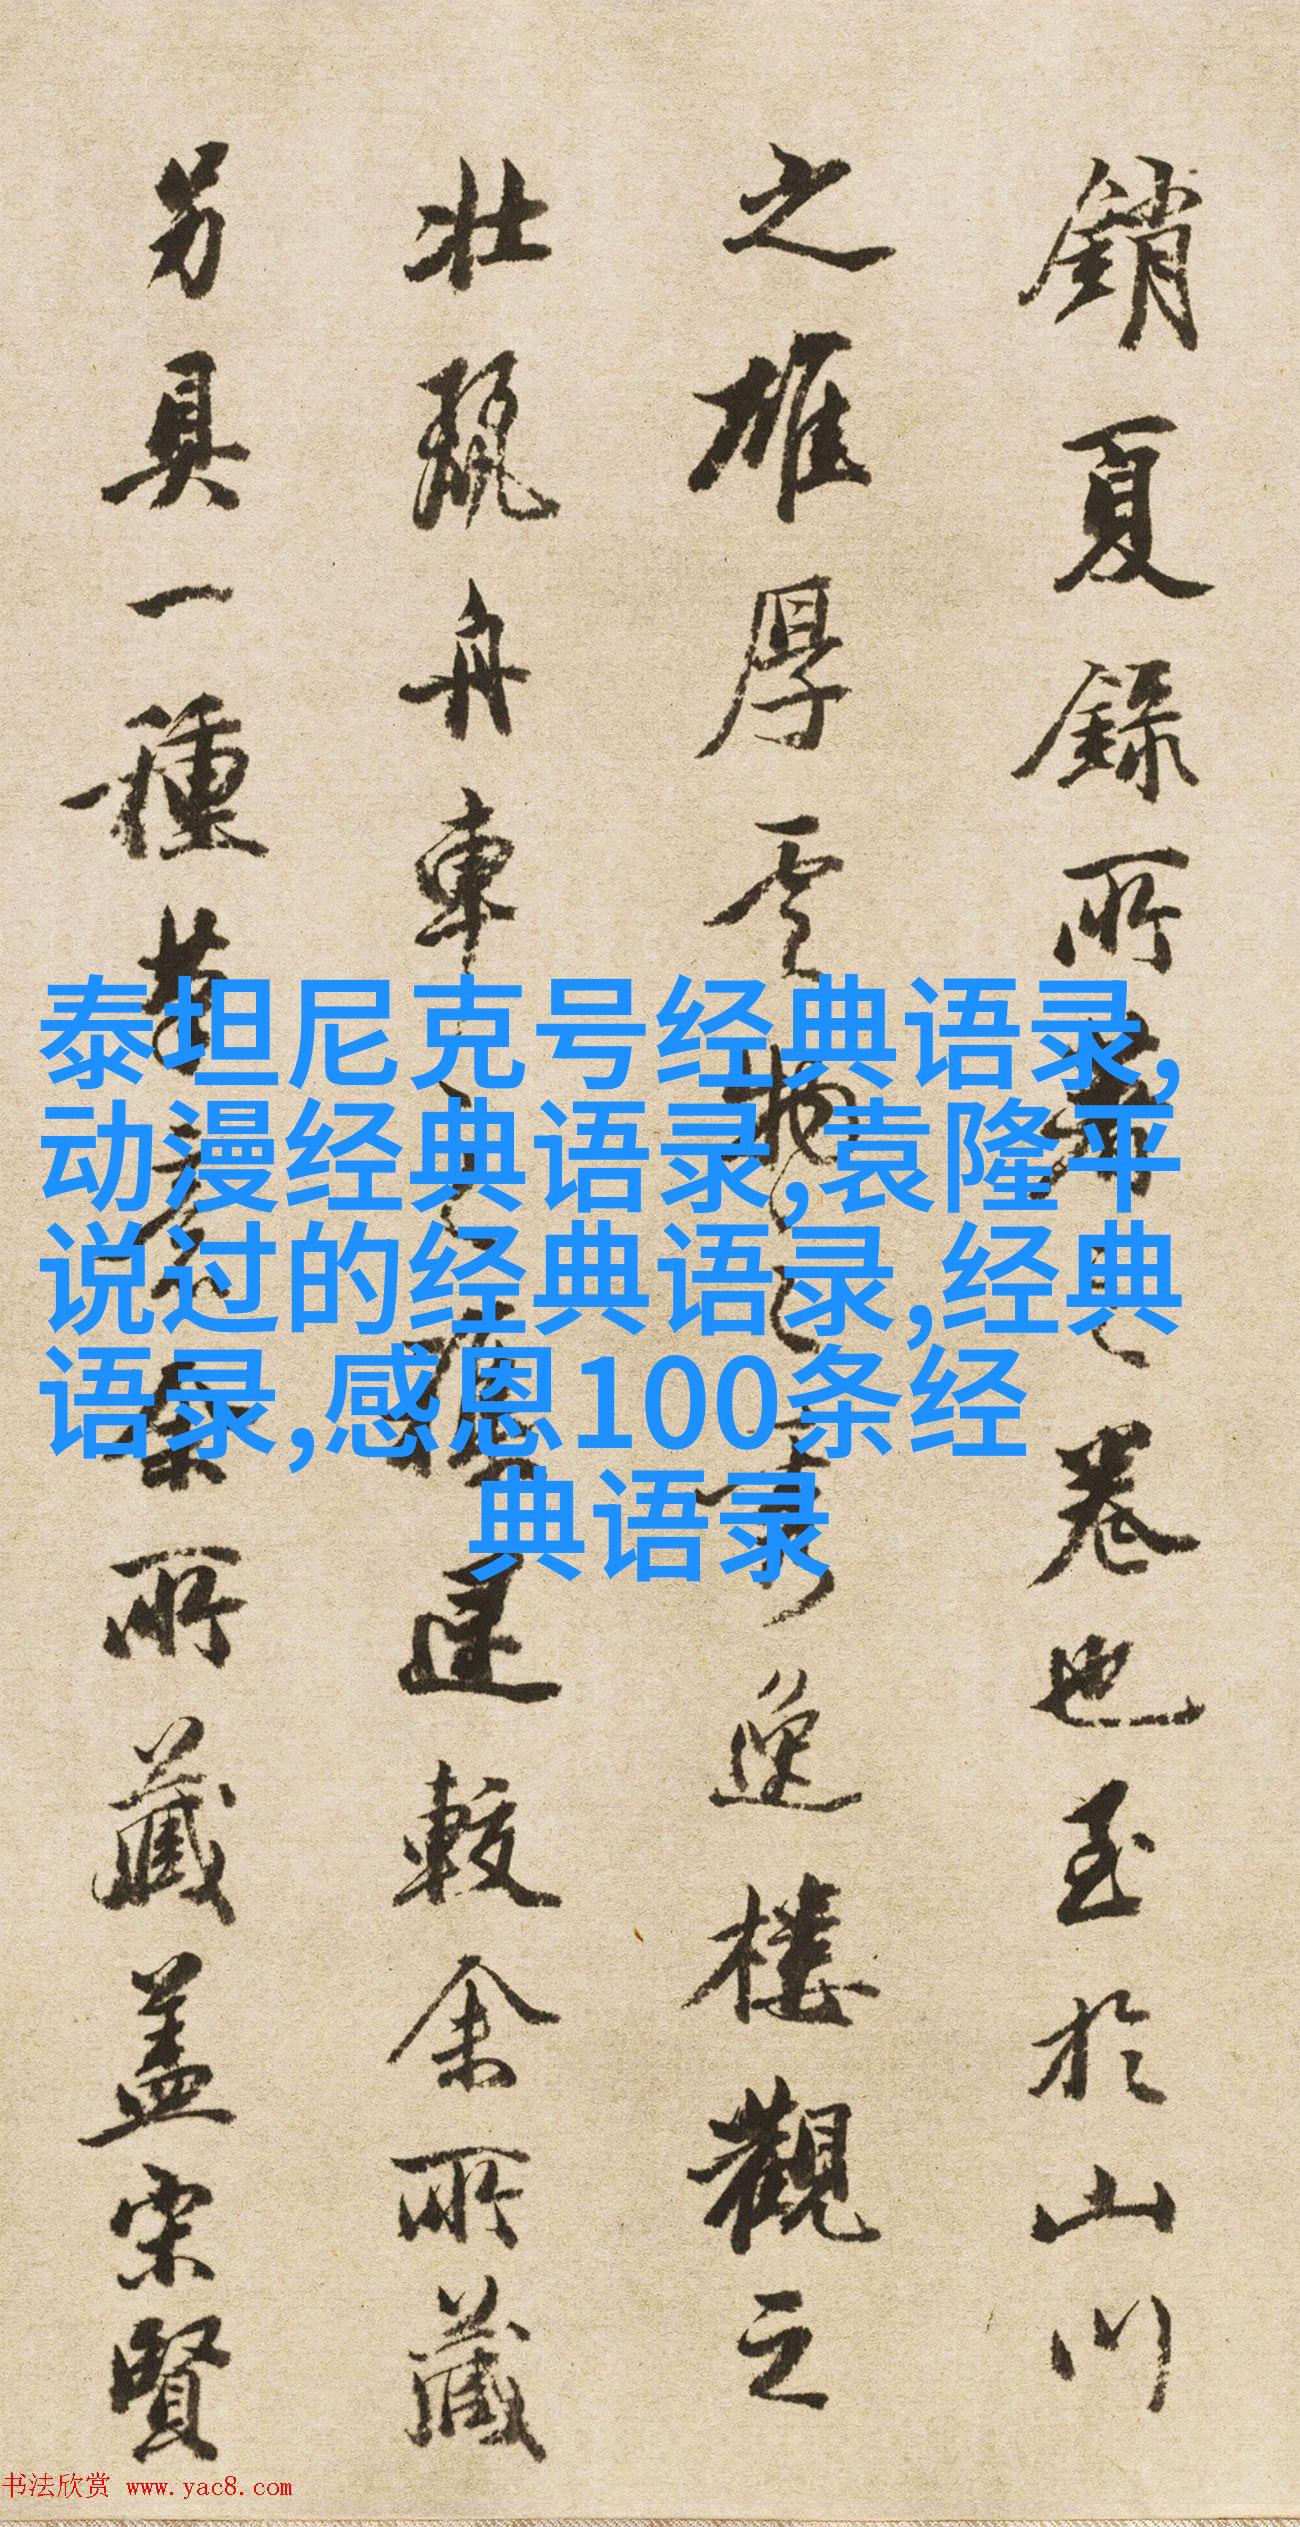 銷夏録所載之卷也至於山川
之雄厚雲物之㝫逸樓觀之
壯麗舟車之穠遅較余所藏
另具一種若余所藏蓋宋賢
泰坦尼克号经典语录,
动漫经典语录,袁隆平
说过的经典语录,经典
语录,感恩100条经
典语录
书法欣赏 www.yac8.com